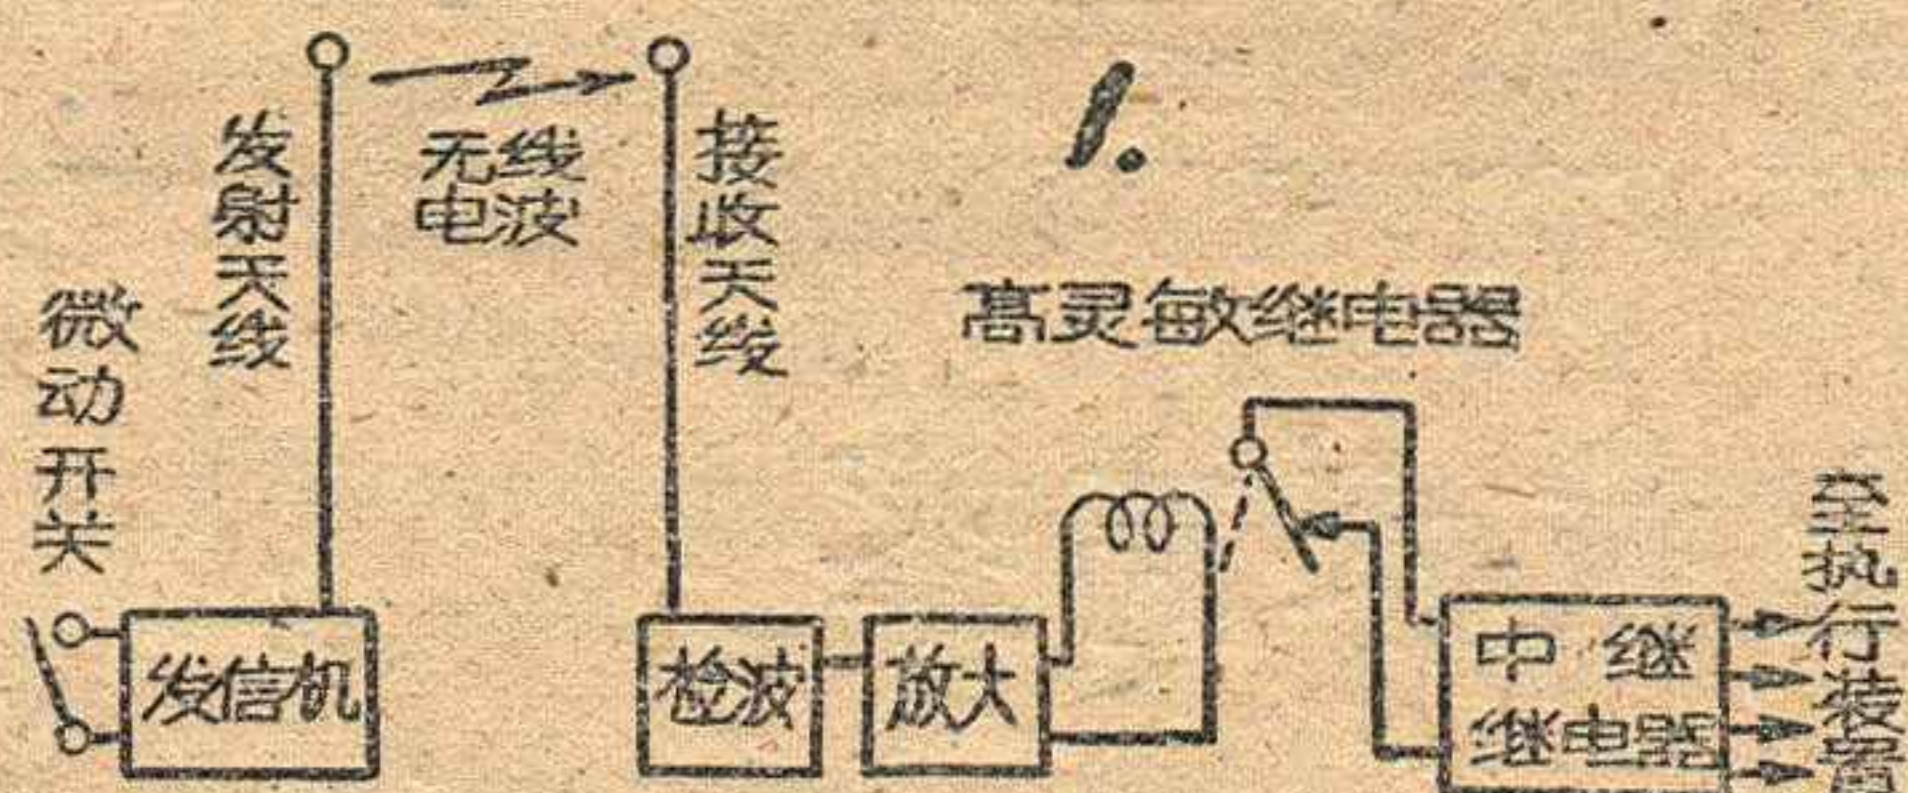 1.
微动开关
发射天线
无线
电波
接收天线
高灵敏继电器
发信机
检波
放大
中继
继电器
至执行装置